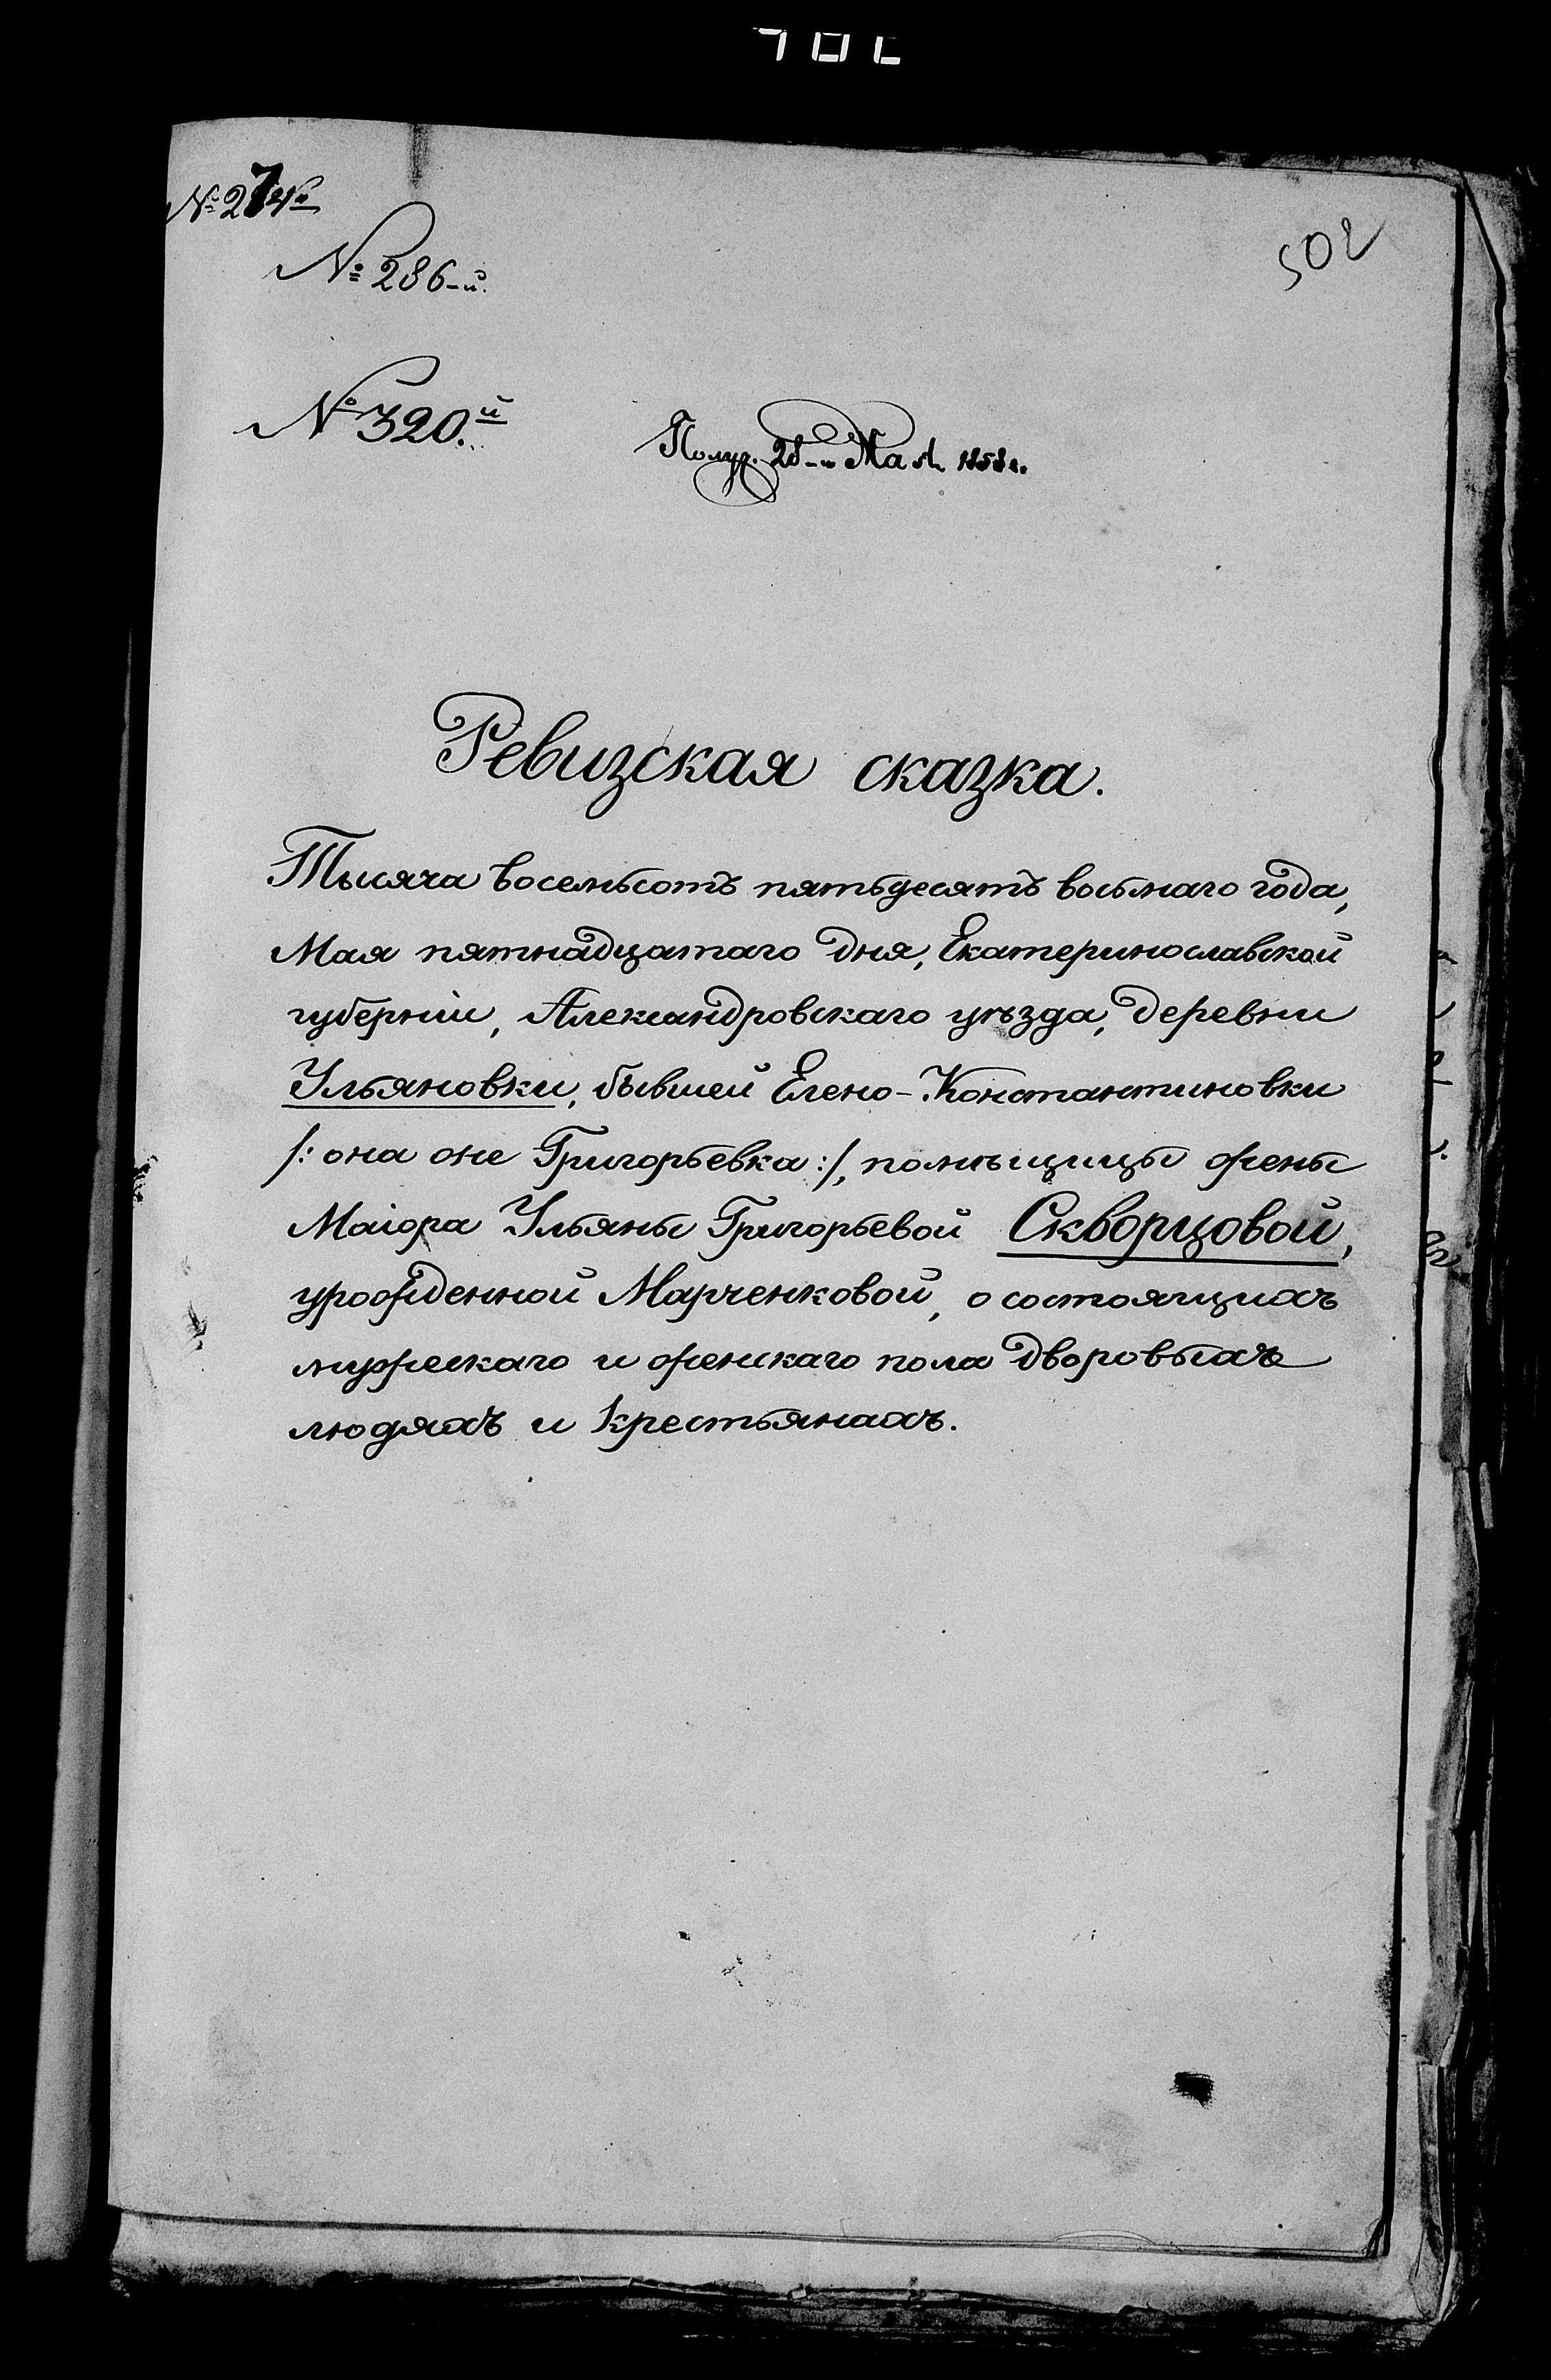 502
№ 286-й.
№ 320.й
Получ. 28-го Мая 1858 г.
Ревизская сказка.
Тысяча восемьсотъ пятьдесятъ восьмаго года,
Мая пятнадцатаго дня, Екатеринославской
губерніи, Александровскаго уѣзда, деревни
Ульяновки, бывшей Елено-Константиновки
/: она же Григорьевка :/, помѣщицы жены
Маіора Ульяны Григорьевой Скворцовой,
урожденной Марченковой, о состоящихъ
мужескаго и женскаго пола дворовыхъ
людяхъ и крестьянахъ.